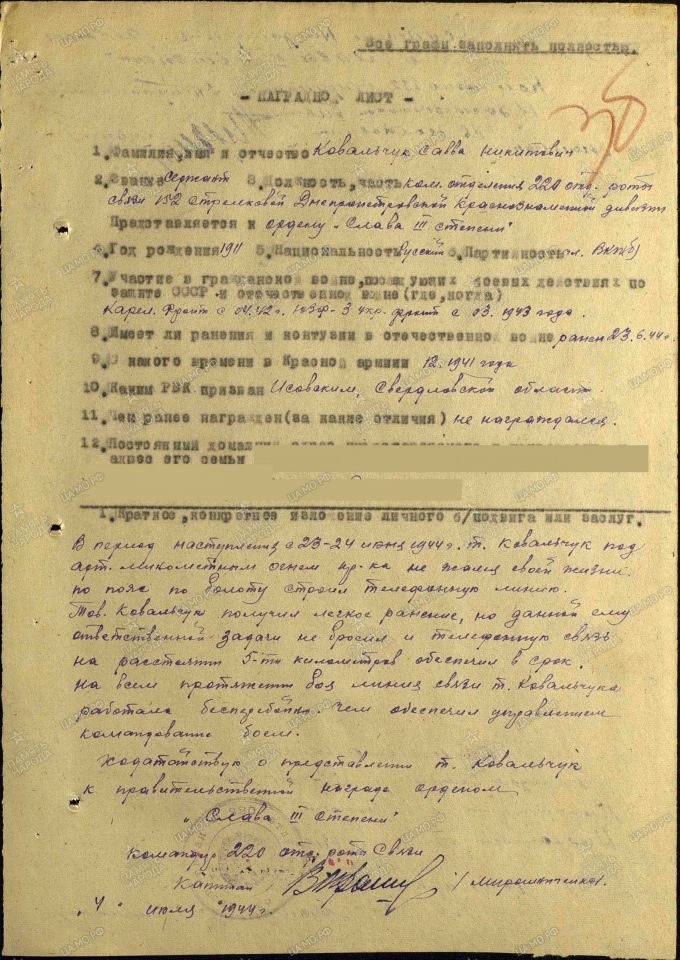 Все графы заполнять полностью.
- НАГРАДНО ЛИСТ -
1. Фамилия, имя и отчество Ковальчук Савва Никитович
2. Звание Сержант 3. Должность, часть ком. отделения 220 отд. роты
связи 152 стрелковой Днепропетровской Краснознаменной дивизии
Представляется к ордену "Слава III степени"
4. Год рождения 1911 5. Национальность русский 6. Партийность чл. ВКП(б)
7. Участие в гражданской войне, последующих боевых действиях по
защите СССР и отечественной войне (где, когда)
Карел. Фронт с 04.42г. ЮЗФ-3 Укр. фронт с 03. 1943 года.
8. Имеет ли ранения и контузии в отечественной войне ранен 23.6.44г.
9. С какого времени в Красной армии 12.1941 года
10. Каким РВК призван Исовским, Свердловской област
11. Чем ранее награжден (за какие отличия) не награждался.
12. Постоянный домашний адрес
адрес его семьи
1. Краткое, конкретное изложение личного б/подвига или заслуг.
В период наступления с 23-24 июня 1944г. т. Ковальчук под
арт. микометным огнем пр-ка не жалея своей жизни.
по пояс по болоту строил телефонную линию.
Тов. Ковальчук получил легкое ранение, но данной ему
ответственной задачи не бросил и телефонную связь
на расстоянии 5-ти километров обеспечил в срок.
На всем протяжении боя линия связи т. Ковальчука
работала бесперебойно. чем обеспечил управлением
командование боем.
Ходатайствую о представлении т. Ковальчук
к правительственной награде орденом
"Слава III степени"
Командир 220 отд. роты Связи
капитан /Мирошниченко/.
"4" июля 1944г.
ЦАМО.РФ
ПАМЯТЬ НАРОДА